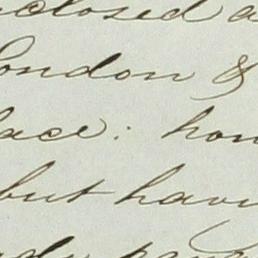 closed a
London &
lace: hon
but havin